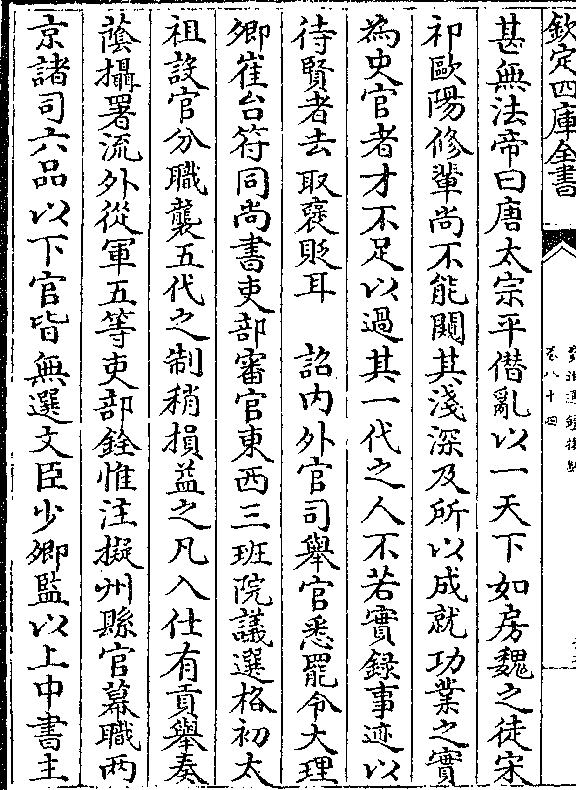 欽定四庫全書
卷八十四
甚無法帝曰唐太宗平僭亂以一天下如房魏之徒宋
祁歐陽修輩尚不能闚其淺深及所以成就功業之實
為史官者才不足以過其一代之人不若實録事迹以
待賢者去取襃貶耳　詔内外官司舉官悉罷令大理
卿崔台符同尚書吏部審官東西三班院議選格初太
祖設官分職襲五代之制稍損益之凡入仕有貢舉奏
蔭攝署流外從軍五等吏部銓惟注擬州縣官幕職兩
京諸司六品以下官皆無選文臣少卿監以上中書主